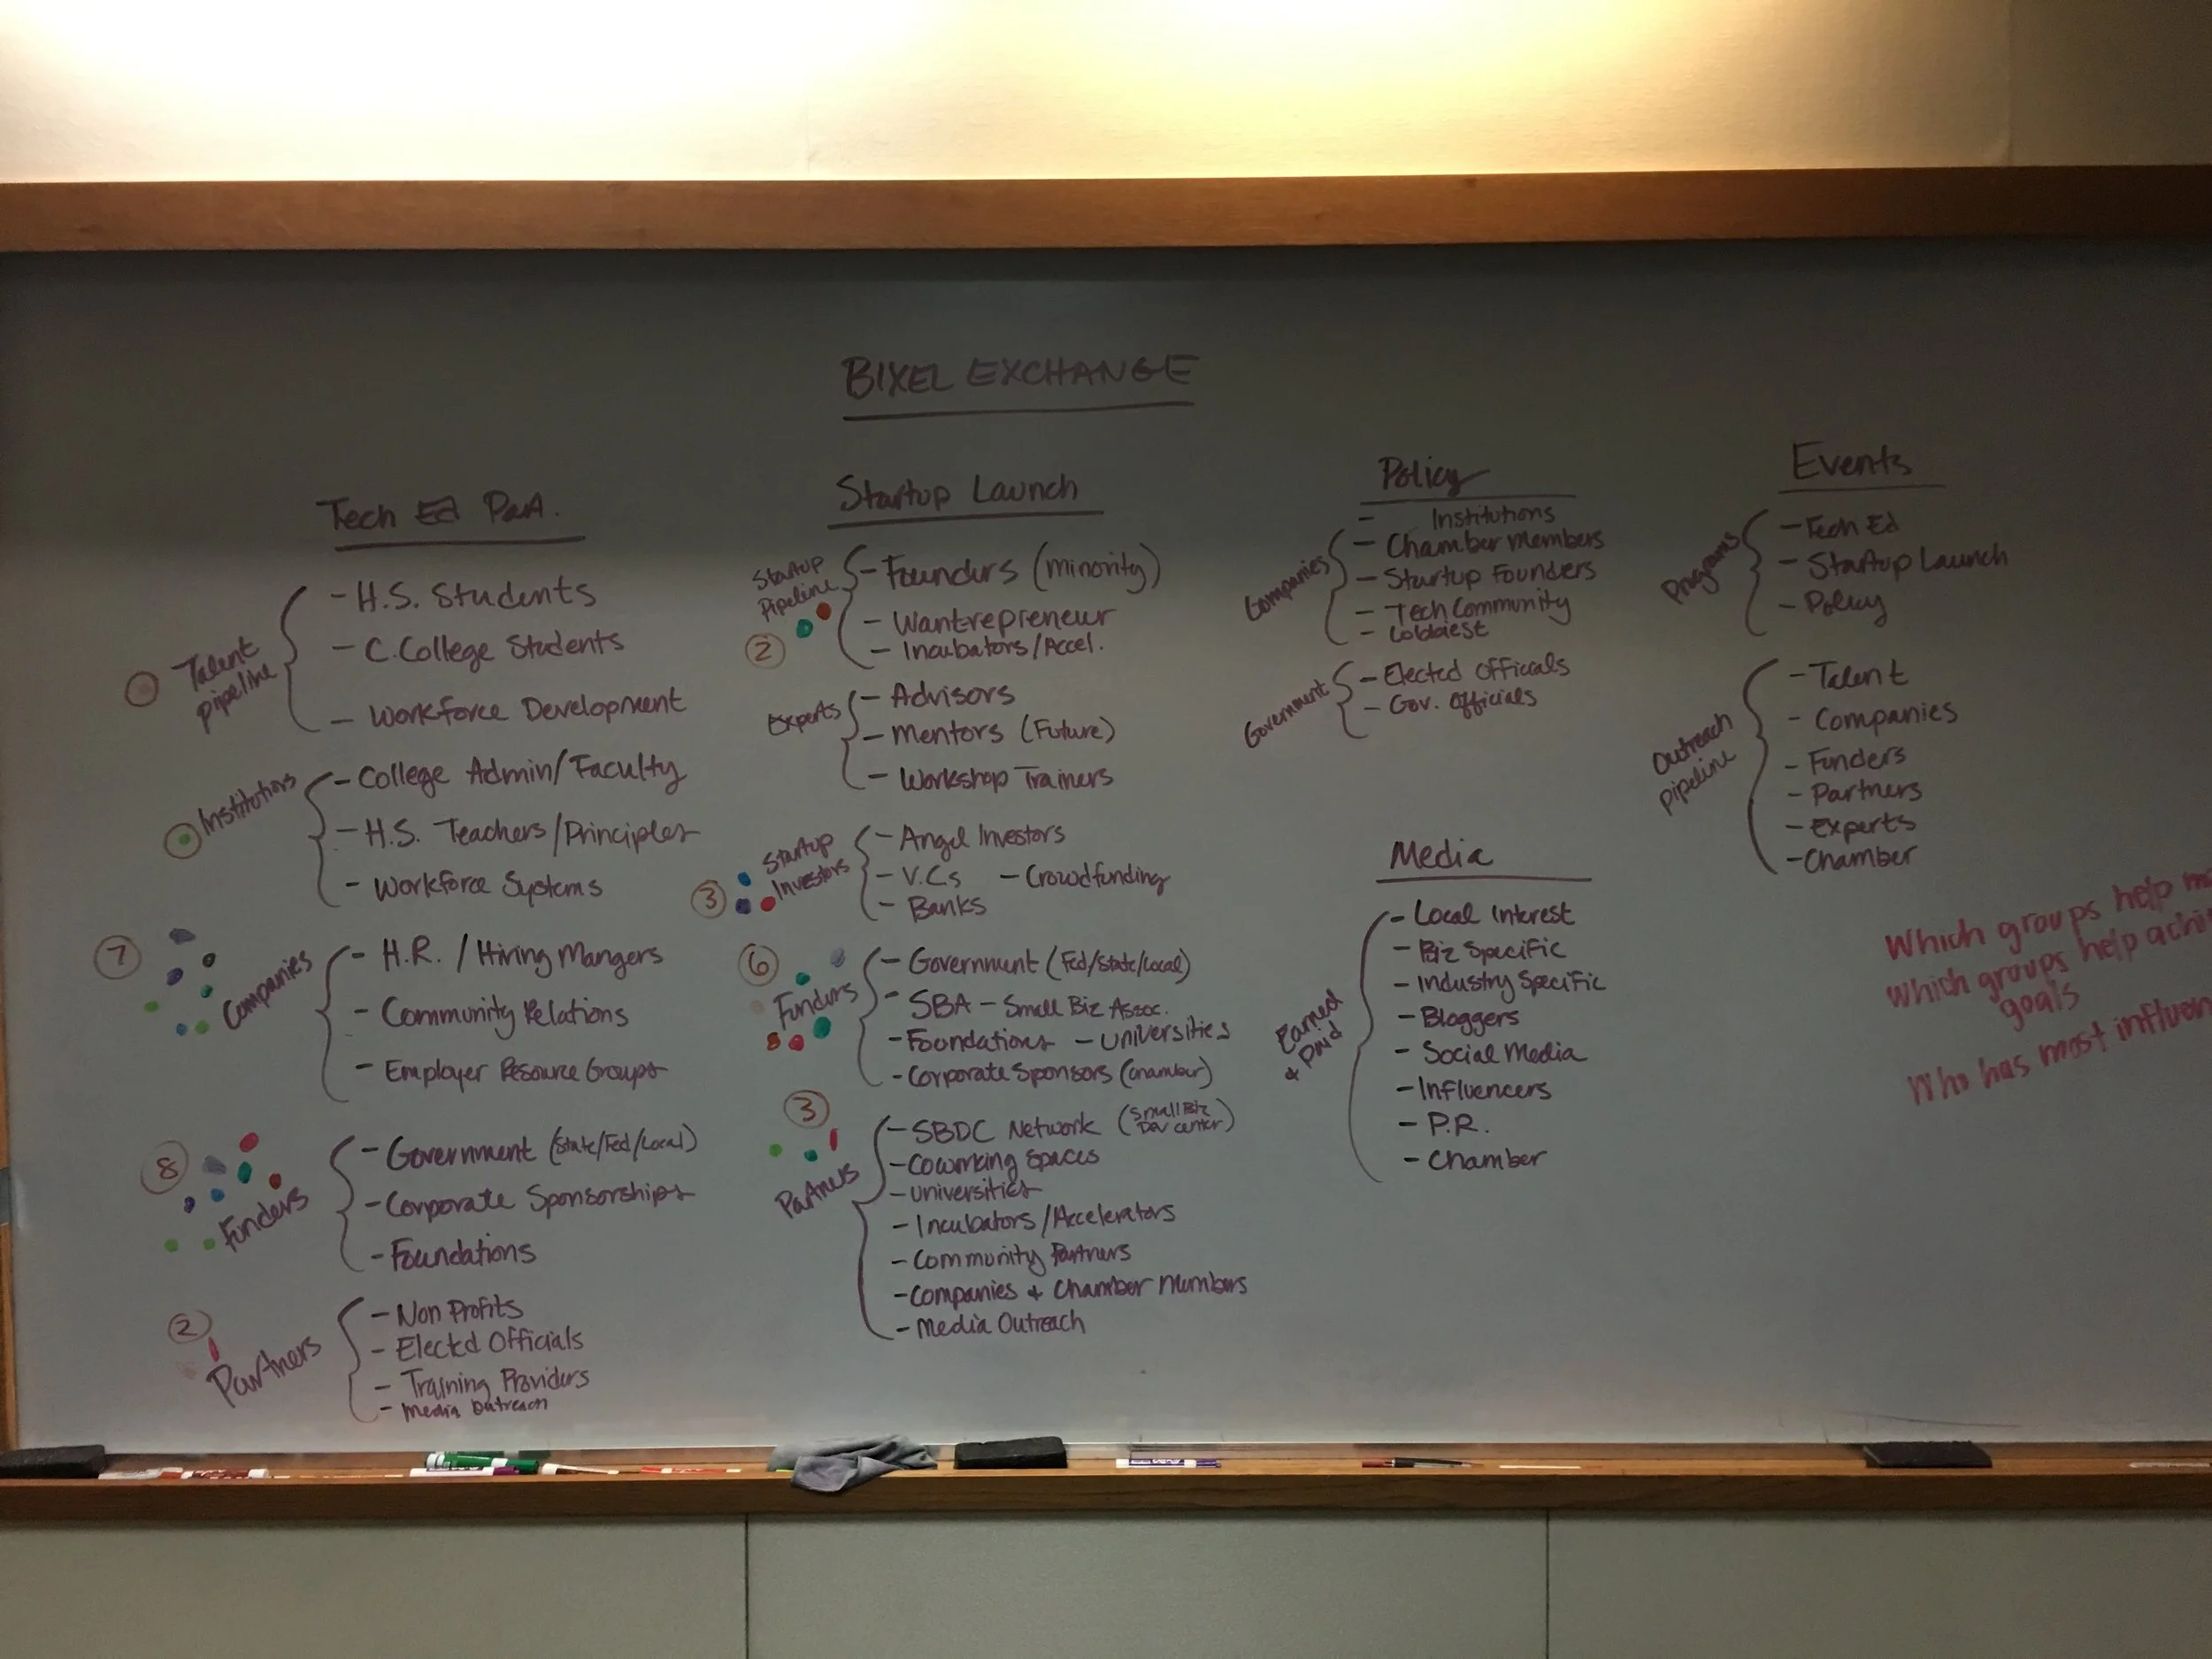 BIXEL EXCHANGE
Tech Ed
Talent pipeline
- H.S. Students
- C.College Students
- Workforce Development
Institutions
- College Admin/Faculty
- H.S. Teachers/Principles
- Workforce Systems
7
Companies
- H.R. / Hiring Mangers
- Community Relations
- Employer Resource Groups
8
Funders
- Government (State/Fed/Local)
- Corporate Sponsorships
- Foundations
2
Partners
- Non Profits
- Elected Officials
- Training Providers
- Media Outreach
Startup Launch
Startup Pipeline
2
- Founders (minority)
- Wantrepreneur
- Incubators/Accel.
Experts
- Advisors
- Mentors (Future)
- Workshop Trainers
3
Startup Investors
- Angel Investors
- V.Cs - Crowdfunding
- Banks
6
Funders
- Government (Fed/State/Local)
- SBA - Small Biz Assoc.
- Foundations - Universities
- Corporate Sponsors (Chamber)
3
Partners
- SBDC Network (Small Biz Dev Center)
- Coworking Spaces
- Universities
- Incubators/Accelerators
- Community Partners
- Companies + Chamber Members
- Media Outreach
Policy
- Institutions
Companies
- Chamber Members
- Startup Founders
- Tech Community
- Lobbiest
Government
- Elected Officials
- Gov. Officials
Media
Earned & Paid
- Local Interest
- Biz Specific
- Industry Specific
- Bloggers
- Social Media
- Influencers
- P.R.
- Chamber
Events
Programs
- Tech Ed
- Startup Launch
- Policy
Outreach pipeline
- Talent
- Companies
- Funders
- Partners
- Experts
- Chamber
Which groups help
which groups help
goals
Who has most